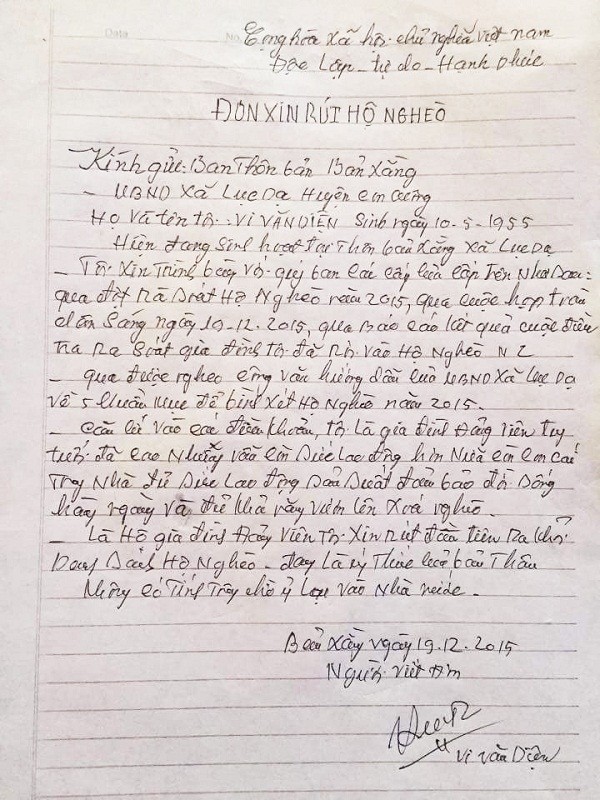 Cộng hòa xã hội chủ nghĩa việt nam
Độc Lập - tự do - Hạnh Phúc
ĐƠN XIN RÚT HỘ NGHÈO
Kính gửi: Ban Thôn bản Bản Xằng
- UBND Xã Lục Dạ Huyện con cuông
Họ Và tên tôi: VI VĂN DIỆN Sinh ngày 10-5-1955
Hiện đang Sinh hoạt tại Thôn bản Xằng xã Lục Dạ
- Tôi Xin Trình bày với quý ban các cấp
qua đợt Rà Soát Hộ Nghèo năm 2015, qua cuộc họp
dân Sáng ngày 19-12.2015, qua Báo cáo kết quả cuộc điều
tra Rà Soát gia đình tôi đã Rơi vào Hộ Nghèo N2
- qua được nghe công văn hướng dẫn của UBND Xã Lục Dạ
về 5 chuẩn mục để bình xét Hộ Nghèo năm 2015.
- Căn cứ vào các điều khoản, tôi là gia đình Đảng viên tuy
tuổi đã cao Nhưng vẫn còn Sức Lao động hơn Nữa con em
Nhà đủ Sức Lao động Sản Suất đảm bảo đời Sống
hàng ngày và đủ khả năng vươn lên xoá nghèo.
- Là Hộ gia đình Đảng Viên Tôi Xin Rút đầu tiên Ra khỏi
Danh Sách Hộ Nghèo - đây Là ý Thức của bản Thân
Không có Tính Trông chờ ỷ lại vào Nhà nước.
Bản Xằng ngày 19.12.2015
Người viết đơn
Vi văn Diện